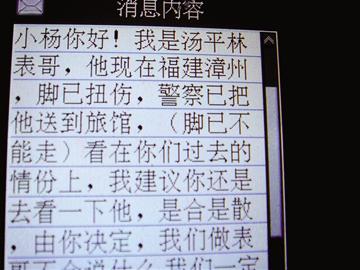 消息内容
小杨你好！我是汤平林
表哥，他现在福建漳州
，脚已扭伤，警察已把
他送到旅馆，（脚已不
能走）看在你们过去的
情份上，我建议你还是
去看一下他，是合是散
，由你决定，我们做表
哥不会说什么我们一定